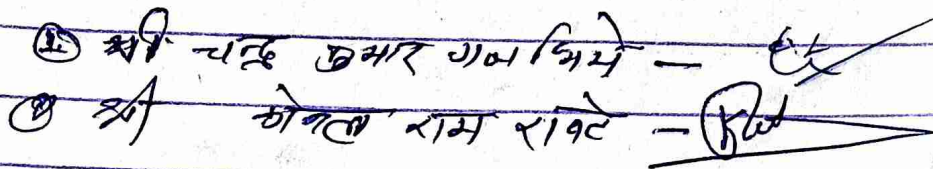 ① श्री चन्द्र कुमार गजभिये —
② श्री राम रावटे —